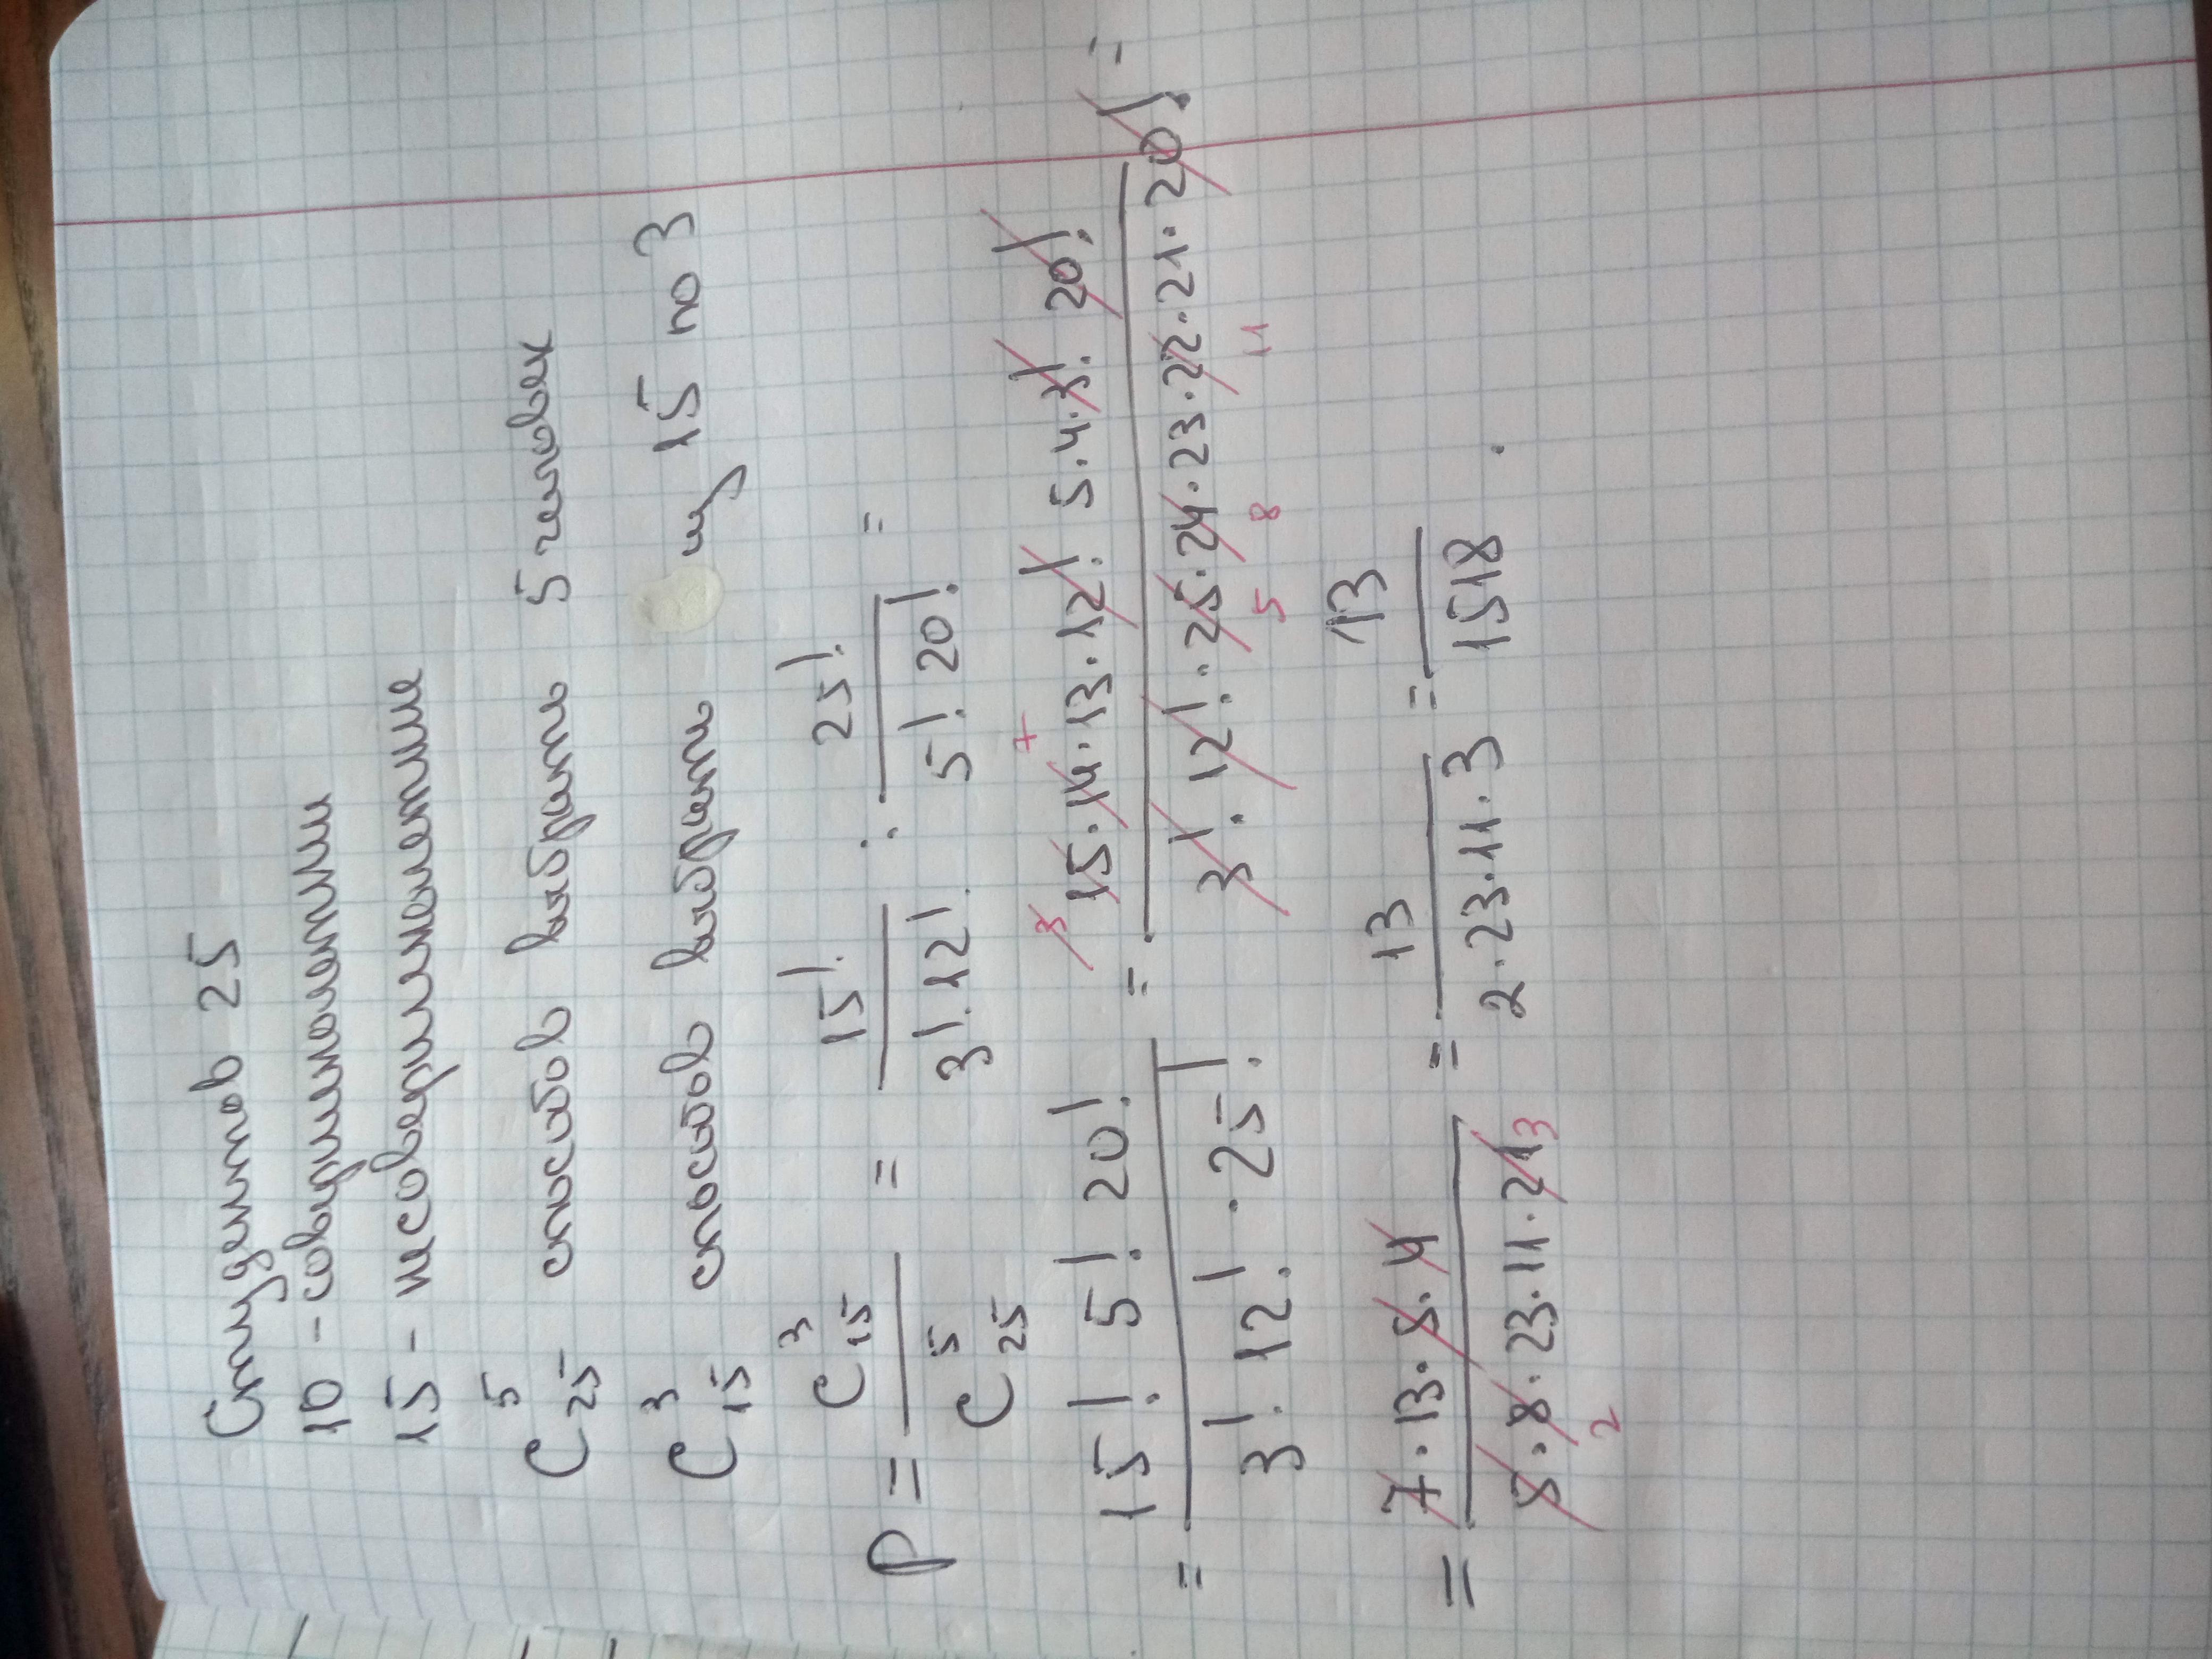 Студентов 25
10 - совершеннолетние
15 - несовершеннолетние
C⁵₂₅ способов выбрать 5 человек
C³₁₅ способов выбрать из 15 по 3
P = C³₁₅ / C⁵₂₅ = 15! / 3!·12! : 25! / 5!·20! =
= 15!·5!·20! / 3!·12!·25! = 3 15·14 7·13·12! 5·4·3!·20! / 3!·12!·25 5·24 8·23·22 11·21·20! =
= 7·13·5·4 / 5·8 2·23·11·21 3 = 13 / 2·23·11·3 = 13 / 1518.